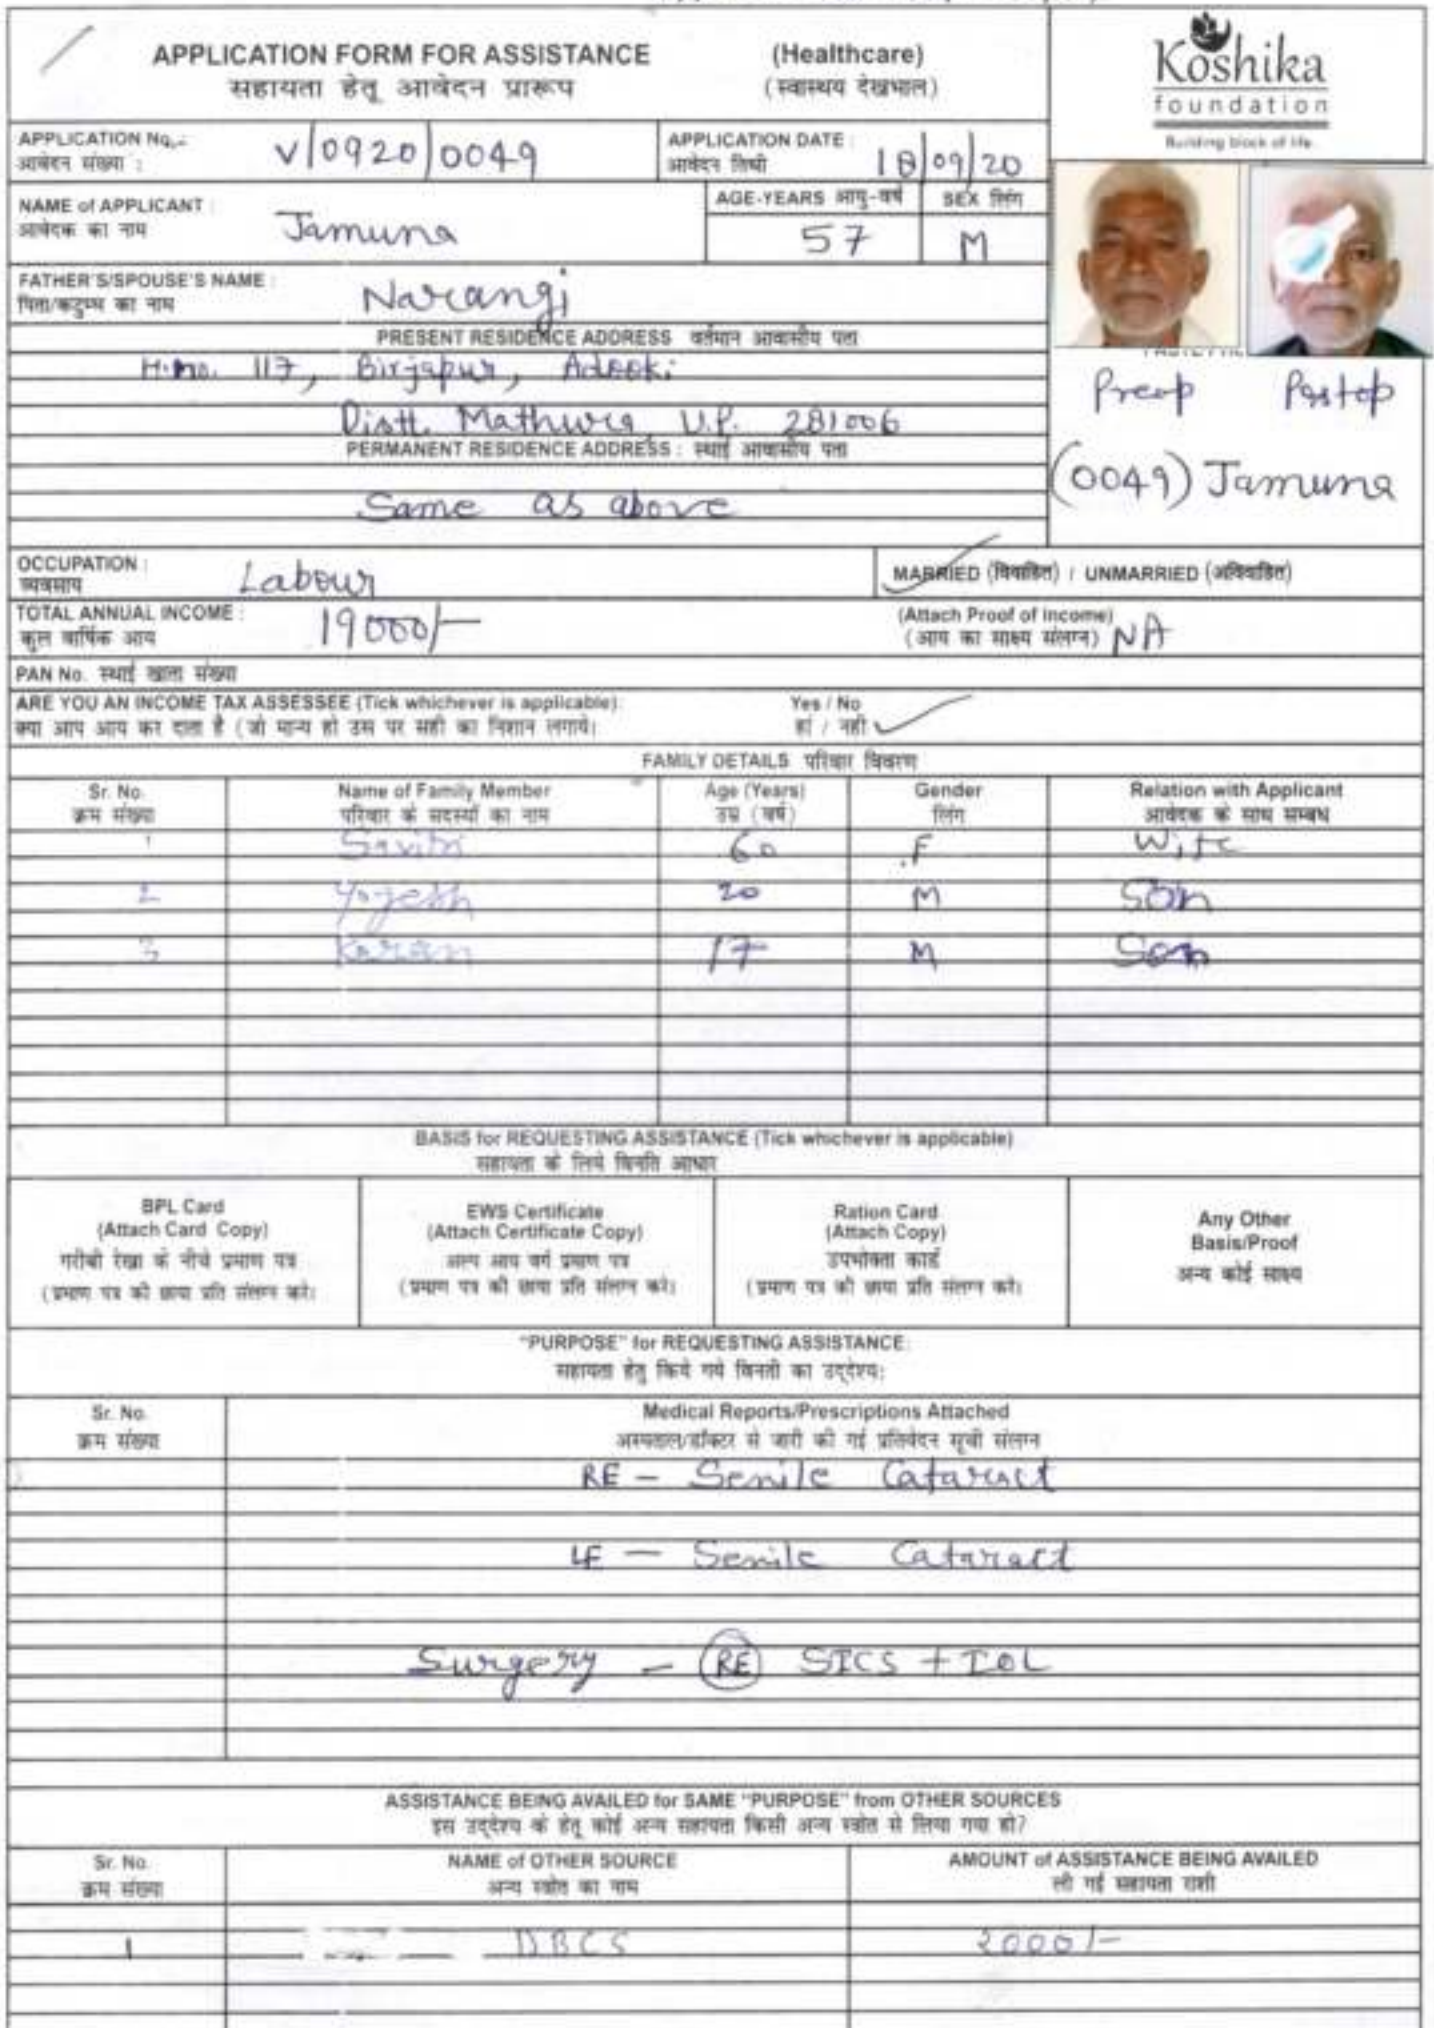 APPLICATION FORM FOR ASSISTANCE (Healthcare)
सहायता हेतू आवेदन प्रारूप (स्वास्थय देखभाल)
Koshika
foundation
Building block of life.
APPLICATION No.: V/0920/0049 APPLICATION DATE : 18/09/20
आवेदन संख्या : आवेदन तिथी
NAME of APPLICANT : Jamuna AGE-YEARS आयु-वर्ष 57 SEX लिंग M
आवेदक का नाम
FATHER'S/SPOUSE'S NAME : Narangi
पिता/कटुम्ब का नाम
PRESENT RESIDENCE ADDRESS वर्तमान आवासीय पता
H.no. 117, Birjapur, Adooki
Distt. Mathura, U.P. 281006
PERMANENT RESIDENCE ADDRESS : स्थाई आवासीय पता
Same as above
Preop Postop
(0049) Jamuna
OCCUPATION : Labour MARRIED (विवाहित) / UNMARRIED (अविवाहित)
व्यवसाय
TOTAL ANNUAL INCOME : 19000/- (Attach Proof of Income)
कुल वार्षिक आय (आय का साक्ष्य संलग्न) NA
PAN No. स्थाई खाता संख्या
ARE YOU AN INCOME TAX ASSESSEE (Tick whichever is applicable): Yes / No
क्या आप आय कर दाता है (जो मान्य हो उस पर सही का निशान लगाये। हां / नही
FAMILY DETAILS परिवार विवरण
Sr. No. Name of Family Member Age (Years) Gender Relation with Applicant
क्रम संख्या परिवार के सदस्यों का नाम उम्र (वर्ष) लिंग आवेदक के साथ सम्बध
1 Savitri 60 F Wife
2 Yogesh 20 M Son
3 Karan 17 M Son
BASIS for REQUESTING ASSISTANCE (Tick whichever is applicable)
सहायता के लिये विनति आधार
BPL Card
(Attach Card Copy)
गरीबी रेखा के नीचे प्रमाण पत्र
(प्रमाण पत्र की छाया प्रति संलग्न करे।
EWS Certificate
(Attach Certificate Copy)
अल्प आय वर्ग प्रमाण पत्र
(प्रमाण पत्र की छाया प्रति संलग्न करे।
Ration Card
(Attach Copy)
उपभोक्ता कार्ड
(प्रमाण पत्र की छाया प्रति संलग्न करे।
Any Other
Basis/Proof
अन्य कोई साक्ष्य
"PURPOSE" for REQUESTING ASSISTANCE:
सहायता हेतु किये गये विनती का उद्देश्य:
Sr. No. Medical Reports/Prescriptions Attached
क्रम संख्या अस्पताल/डॉक्टर से जारी की गई प्रतिवेदन सूची संलग्न
RE - Senile Cataract
LE - Senile Cataract
Surgery - RE SICS + IOL
ASSISTANCE BEING AVAILED for SAME "PURPOSE" from OTHER SOURCES
इस उद्देश्य के हेतू कोई अन्य सहायता किसी अन्य स्त्रोत से लिया गया हो?
Sr. No. NAME of OTHER SOURCE AMOUNT of ASSISTANCE BEING AVAILED
क्रम संख्या अन्य स्त्रोत का नाम ली गई सहायता राशी
1 DBCS 2000/-